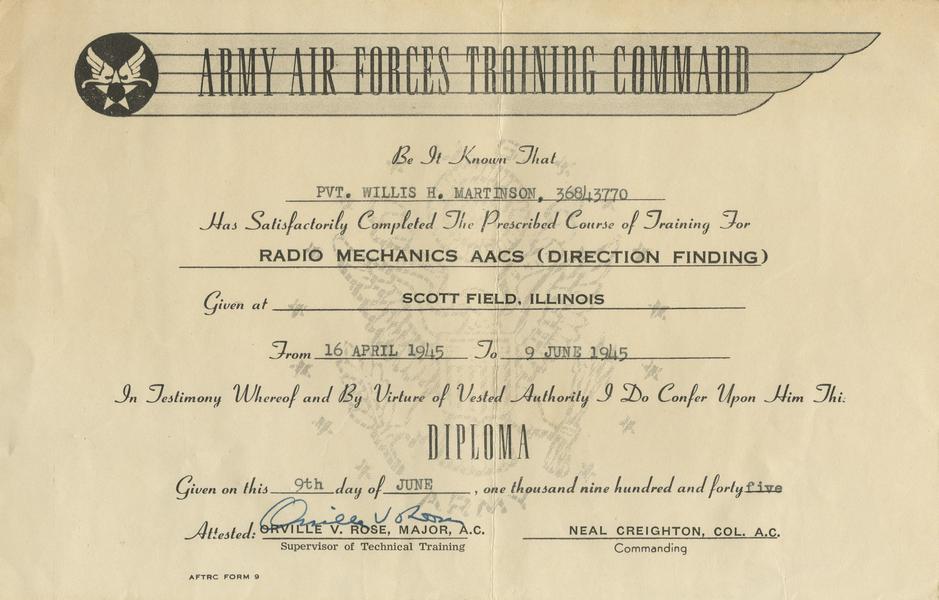 ARMY AIR FORCES TRAINING COMMAND
Be It Known That
PVT. WILLIS H. MARTINSON, 36843770
Has Satisfactorily Completed The Prescribed Course of Training For
RADIO MECHANICS AACS (DIRECTION FINDING)
Given at SCOTT FIELD, ILLINOIS
From 16 APRIL 1945 To 9 JUNE 1945
In Testimony Whereof and By Virtue of Vested Authority I Do Confer Upon Him This
DIPLOMA
Given on this 9th day of JUNE, one thousand nine hundred and forty five
Orville V Rose
Attested: ORVILLE V. ROSE, MAJOR, A.C. NEAL CREIGHTON, COL. A.C.
Supervisor of Technical Training Commanding
ARMY
AFTRC FORM 9